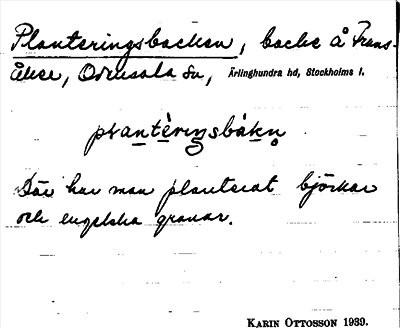 Planteringsbacken, backe å Frans-
åker, Odensala sn, Ärlinghundra hd, Stockholms l.
plantèriŋsbákn̥
Där har man planterat björkar
och engelska granar.
KARIN OTTOSSON 1939.